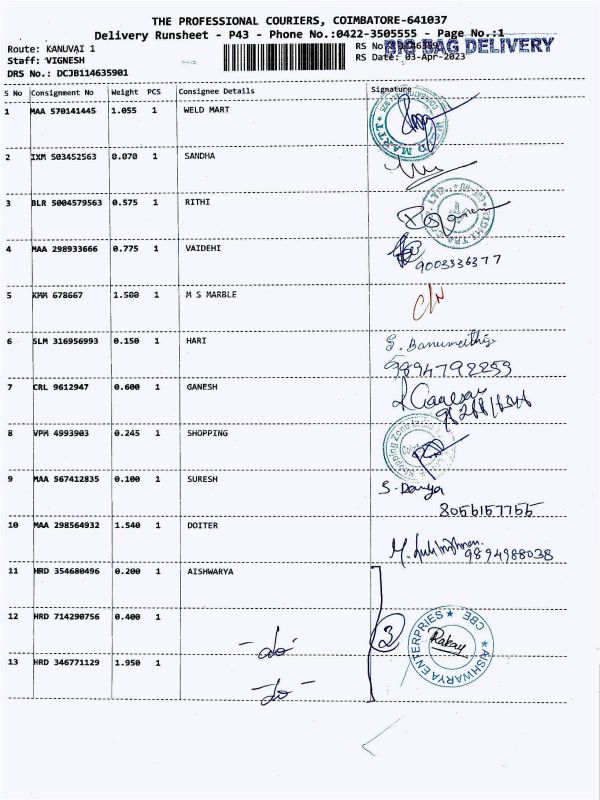 THE PROFESSIONAL COURIERS, COIMBATORE-641037
Delivery Runsheet - P43 - Phone No.:0422-3505555 - Page No.:1
Route: KANUVAI 1 RS No BIG BAG DELIVERY
Staff: VIGNESH RS Date: 03-Apr-2023
DRS No.: DCJB114635901
S No Consignment No Weight PCS Consignee Details Signature
1 MAA 570141445 1.055 1 WELD MART
2 IXM 503452563 0.070 1 SANDHA
3 BLR 5004579563 0.575 1 RITHI
4 MAA 298933666 0.775 1 VAIDEHI
9003336377
5 KMM 678667 1.500 1 M S MARBLE
6 SLM 316956993 0.150 1 HARI
9894792259
7 CRL 9612947 0.600 1 GANESH
8 VPM 4993903 0.245 1 SHOPPING
9 MAA 567412835 0.100 1 SURESH S. Danya
8056157755
10 MAA 298564932 1.540 1 DOITER
9894988038
11 HRD 354680496 0.200 1 AISHWARYA
12 HRD 714290756 0.400 1 -do- 3 AISHWARYA ENTERPRIES ★ CBE ★
13 HRD 346771129 1.950 1 -do-